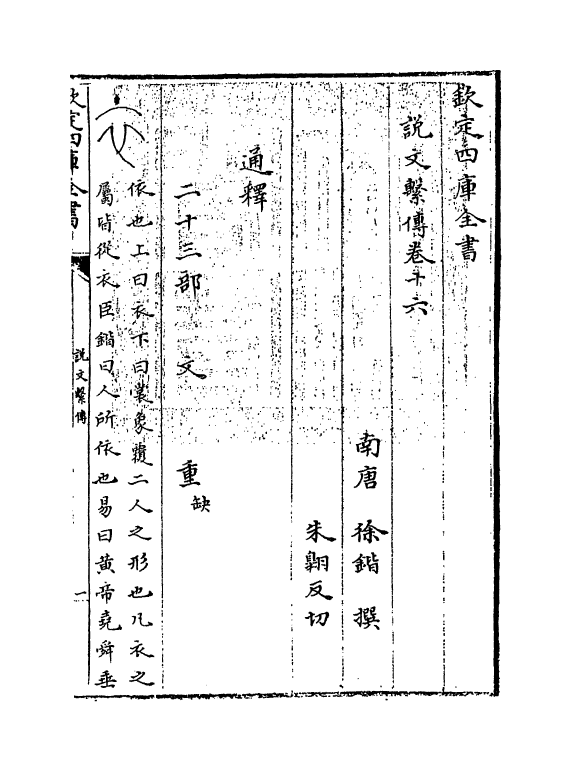 欽定四庫全書
說文繫傳卷十六
南唐 徐鍇 撰
朱翺反切
通釋
二十三部 文 重缺
衣
依也上曰衣下曰裳象覆二人之形也凡衣之
屬皆從衣臣鍇曰人所依也易曰黄帝堯舜垂
欽定四庫全書
說文繫傳
一